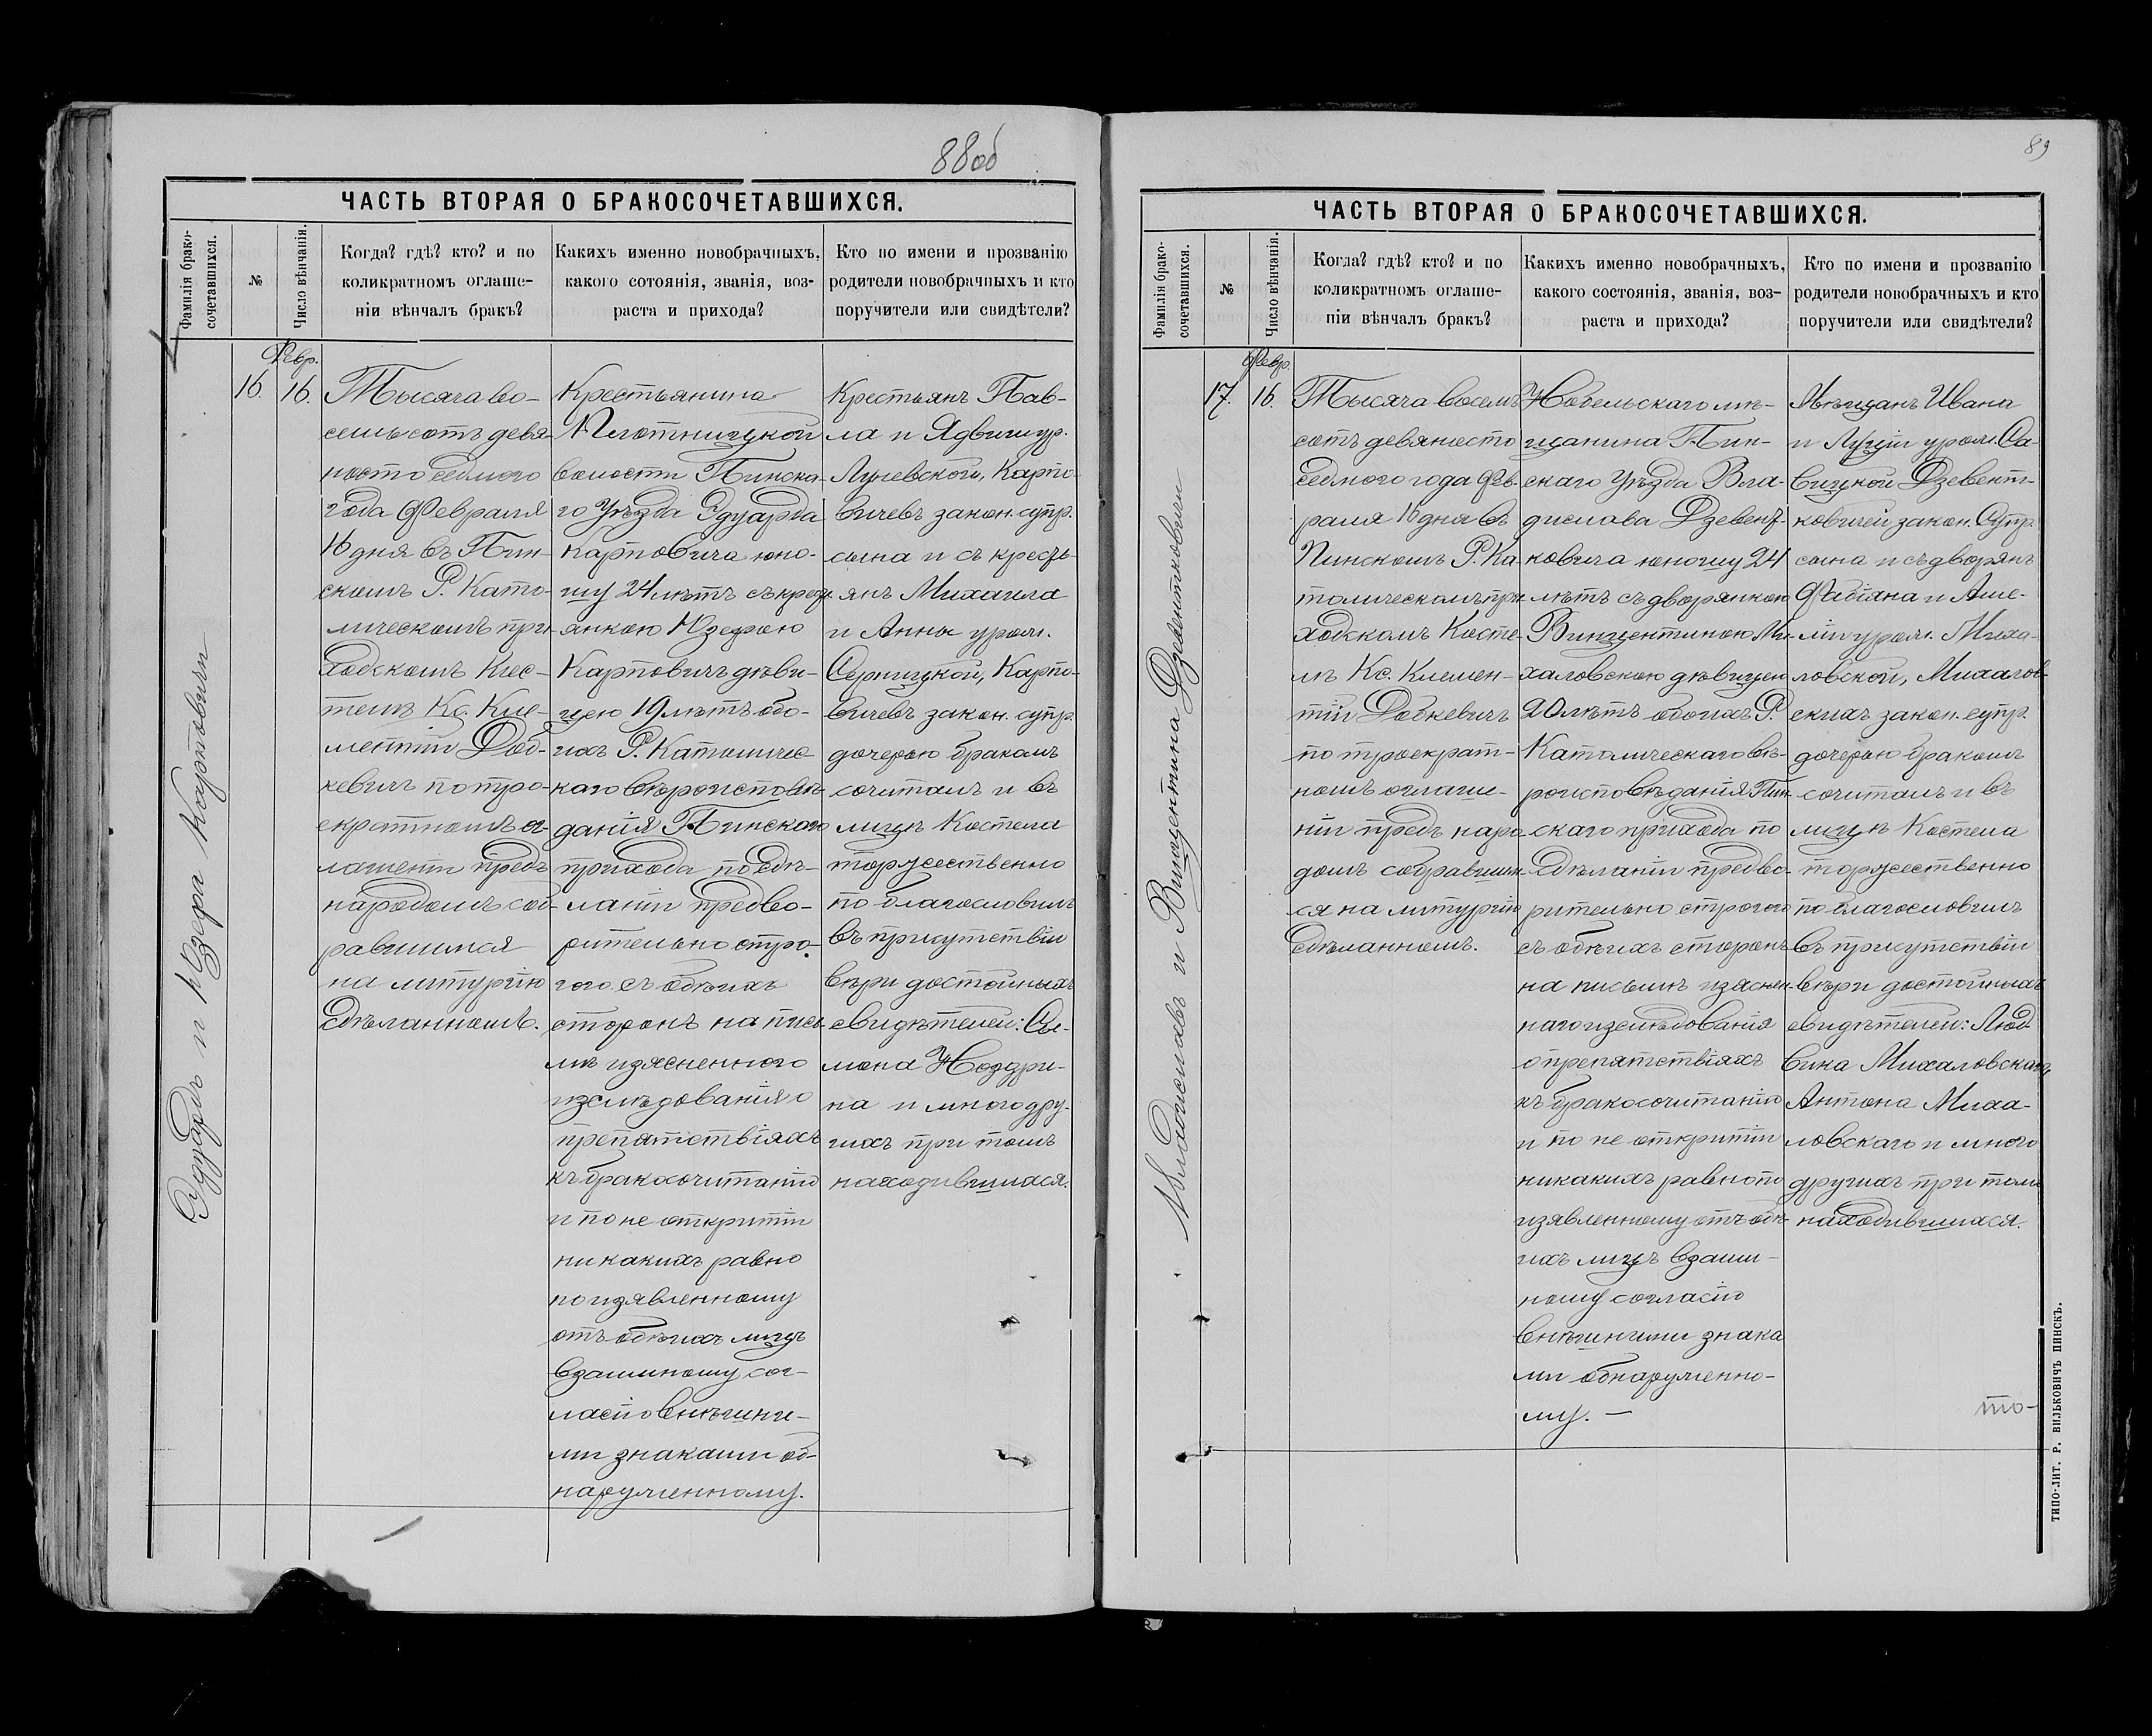 88об
ЧАСТЬ ВТОРАЯ О БРАКОСОЧЕТАВШИХСЯ.
Фамилія брако-
сочетавшихся.
№
Число вѣнчанія.
Когда? гдѣ? кто? и по
коликратномъ оглаше-
ніи вѣнчалъ бракъ?
Какихъ именно новобрачныхъ,
какого сотоянія, званія, воз-
раста и прихода?
Кто по имени и прозванію
родители новобрачныхъ и кто
поручители или свидѣтели?
Эдуардъ и Юзефа Карповичи
16.
Февр.
16.
Тысяча во-
семьсотъ девя-
носто седмого
года Февраля
16 дня въ Пин-
скомъ Р. Като-
лическомъ при-
ходскомъ Кос-
телѣ Кс. Кле-
ментій Доб-
кевичъ по тро-
екратномъ ог-
лашеніи предъ
народомъ соб-
равшимся
на литургію
сдѣланномъ.
Крестьянина
Плотницкой
волости Пинска-
го Уѣзда Эдуарда
Карповича юно-
шу 24 лѣтъ съ крест-
янкою Юзефою
Карповичъ дѣви-
цею 19 лѣтъ обо-
ихъ Р. Католичес
каго вѣроисповѣ-
данія Пинского
прихода по сдѣ-
ланіи предво-
рительно стро-
гого съ обѣихъ
сторонъ на пись
мѣ изясненного
изслѣдованія о
препятствіяхъ
къ бракосочитанію
и по не открытіи
никакихъ равно
по изявленному
отъ обѣихъ лицъ
взаимному сог-
ласію внѣшни-
ми знаками об-
наруженному.
Крестьянъ Пав-
ла и Ядвиги ур.
Лулевской, Карпо-
вичевъ закон. супр.
сына и съ кресть-
янъ Михаила
и Анны урож.
Серницкой, Карпо-
вичевъ закон. супр.
дочерью бракомъ
сочиталъ и въ
лицѣ Костела
торжественно
по благословилъ
въ присутствіи
вѣри достойныхъ
свидѣтелей: Сы-
мона Ноздри-
на и много дру-
гихъ при томъ
находившихся.
89
ЧАСТЬ ВТОРАЯ О БРАКОСОЧЕТАВШИХСЯ.
Фамилія брако-
сочетавшихся.
№
Число вѣнчанія.
Когда? гдѣ? кто? и по
коликратномъ оглаше-
ніи вѣнчалъ бракъ?
Какихъ именно новобрачныхъ,
какого состоянія, званія, воз-
раста и прихода?
Кто по имени и прозванію
родители новобрачныхъ и кто
поручители или свидѣтели?
Владиславъ и Винцентина Дзевентковичи
17.
Февр.
16.
Тысяча восемъ
сотъ девяносто
седмого года Фев-
раля 16 дня въ
Пинскомъ Р. Ка-
толическомъ при
ходскомъ Косте-
лѣ Кс. Клемен-
тій Добкевичъ
по троекрат-
номъ оглаше-
ніи предъ наро-
домъ собравшим-
ся на литургію
сдѣланномъ.
Нобельскаго мѣ-
щанина Пин-
скаго Уѣзда Вла-
дислава Дзевент-
ковича юношу 24
лѣтъ съ дворянкою
Винцентиною Ми-
халовскою дѣвицею
20 лѣтъ обоихъ Р.
Католическаго вѣ-
роисповѣданія Пин-
скаго прихода по
сдѣланіи предва-
рительно строгого
съ обѣихъ сторонъ
на письмѣ изяснен-
наго изслѣдованія
о препятствіяхъ
къ бракосочитанію
и по не открытіи
никакихъ равно по
изявленному отъ обѣ-
ихъ лицъ взаим-
ному согласію
внѣшними знака
ми обнаруженно-
му. —
Мѣщанъ Ивана
и Луціи урож. Са-
вицкой Дзевент-
ковичей закон. Супр.
сына и съ дворянъ
Фабіана и Аме-
ліи урож. Миха-
ловской, Михалов-
скихъ закон. супр.
дочерью бракомъ
сочиталъ и въ
лицѣ Костела
торжественно
по благословилъ
въ присутствіи
вѣри достойныхъ
свидѣтелей: Люд-
вика Михаловскаго,
Антона Миха-
ловскаго и много
другихъ при томъ
находившихся.
то-
ТИПО-ЛИТ. Р. ВИЛЬКОВИЧЪ ПИНСКЪ.